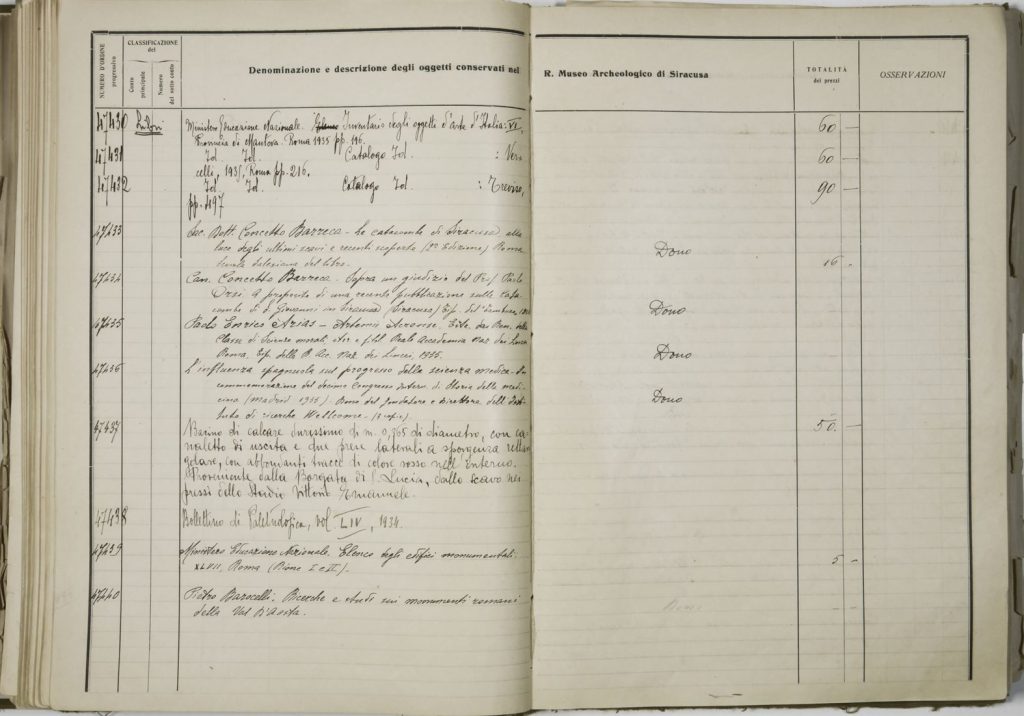 NUMERO D'ORDINE progressivo
CLASSIFICAZIONE del
Conto principale
Numero del sotto conto
Denominazione e descrizione degli oggetti conservati nel R. Museo Archeologico di Siracusa
TOTALITÀ dei prezzi
OSSERVAZIONI
47430 Libri Ministero Educazione Nazionale. Inventario degli oggetti d'arte d'Italia: VI, 60 —
Provincia di Mantova. Roma 1935 pp. 196.
47431 Id. Id. Catalogo Id. : Ver 60 —
celli, 1935, Roma pp. 216.
47432 Id. Id. Catalogo Id. : Treviso, 90 —
pp. 497
47433 Sac. Dott. Concetto Barreca - Le catacombe di Siracusa alla
luce degli ultimi scavi e recenti scoperte (2ª Edizione) Roma Dono
Scuola salesiana del libro. 16 -
47434 Can. Concetto Barreca - Sopra un giudizio del Prof. Paolo
Orsi. A proposito di una recente pubblicazione sulle cata
combe di S. Giovanni in Siracusa (Siracusa) Tip. del Tamburo Dono
47435 Paolo Enrico Arias - Artemis Acronse. Estr. dai Ren. della
Classe di Scienze morali, stor. e fil. Reale Accademia Naz. dei Lincei
Roma, Tip. della R. Acc. Naz. dei Lincei, 1935. Dono
47436 L'influenza spagnuola sul progresso della scienza medica - In
commemorazione del decimo Congresso intern. di Storia della medi
cina (Madrid 1935) - Dono del fondatore e direttore dell'Isti Dono
tuto di ricerche Wellcome - (3 copie).
47437 Bacino di calcare durissimo di m. 0,765 di diametro, con ca 50. -
naletto di uscita e due prese laterali a sporgenza rettan
golare, con abbondanti tracce di colore rosso nell'interno.
Proveniente dalla Borgata di S. Lucia, dallo scavo nei
pressi dello Stadio Vittorio Emanuele.
47438 Bollettino di Paletnologia, vol. LIV, 1934.
47439 Ministero Educazione Nazionale. Elenco degli edifici monumentali: 5 -
XLVII, Roma (Rione I e II).
47440 Pietro Barocelli: Ricerche e studi sui monumenti romani Dono
della Val D'Aosta.